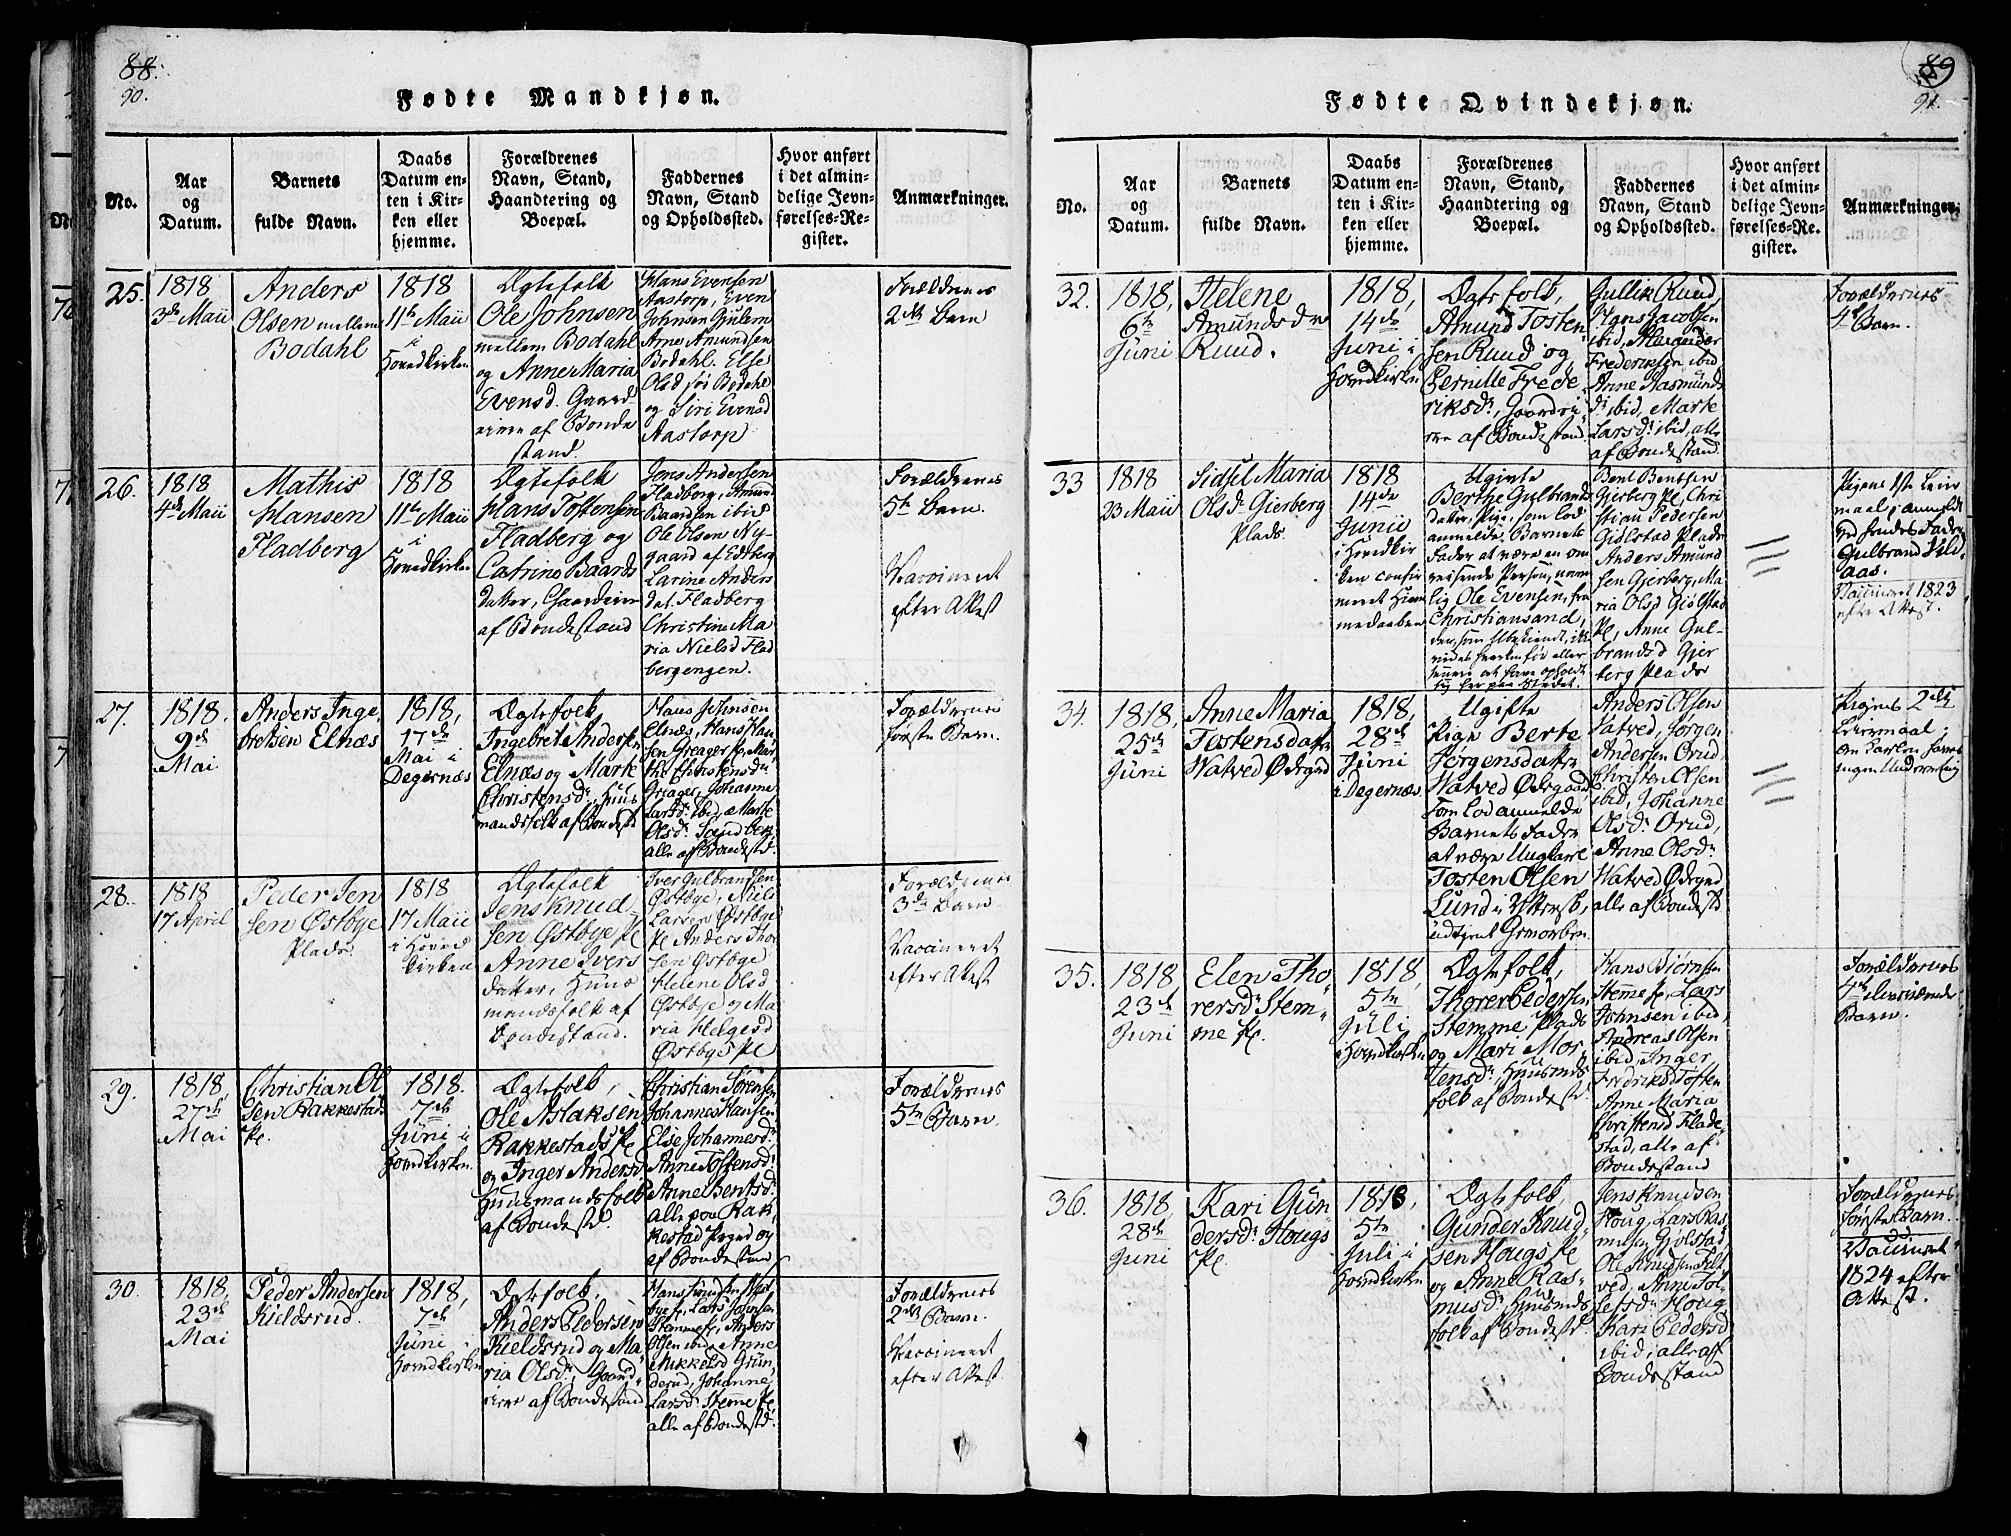 88.
90.
Fødte Mandkjøn.
No.
Aar
og
Datum.
Barnets
fulde Navn.
Daabs
Datum en-
ten i Kir-
ken eller
hjemme.
Forældrenes
Navn, Stand,
Haandtering og
Boepæl.
Faddernes
Navn, Stand
og Opholdssted.
Hvor anført
i det almin-
delige Jevn-
førelses-Re-
gister.
Anmærkninger.
25.
1818
3de Maii
Anders
Olsen mellem
Bodahl
1818
11te Maii
i
Hovedkirken
Ægtefolk
Ole Johnsen
mellem Bodahl
og Anne Maria
Evensd. Gaard-
eiere af Bonde
stand.
Hans Evensen
Aastorp, Even
Johnsen Gulern
Arne Amundsen
Bodahl. Else
Olsd. Bodahl
og Siri Evensd
Aastorp
Forældrenes
2det Barn
26.
1818
4de Maii
Mathis
Hansen
Fladberg
1818
11te Maii
i
Hovedkirken
Ægtefolk
Hans Tostensen
Fladberg og
Catrine Baards
datter, Gaardeiere
af Bondestand
Jens Andersen
Fladberg, Amund
Baardsen ibid
Ole Olsen Ny-
gaard af Edsberg
Larine Anders
dat. Fladberg
Christine Ma
ria Nielsd Flad
bergengen.
Forældrenes
5te Barn.
Vaccineret
efter Attest
27.
1818.
9de
Mai
Anders Inge,
bretsen Elnæs
1818,
17de
Mai i
Degernæs
Ægtefolk
Ingebret Andersen
Elnæs og Marte
Christensdr. Huus
mandsfolk af Bondest
Hans Johnsen
Elnæs, Hans Han
sen Greager Pl, Mar
the Christensdr
Greager, Johanne
Larsdr ibid, Marte
Olsdr Sandbek
alle af Bondestd.
Forældrenes
første Barn.
28.
1818
17 April
Peder Jen
sen Østbye
Plads.
1818
17 Maii
i Hoved
kirken
Ægtefolk
Jens Knud
sen Østbye Pl
Anne Ivers
datter, Huus
mandsfolk af
Bondestand.
Iver Gulbrandsen
Østbye, Niels
Larsen Østbye
Pl Anders Thor
sen Østbye
Helene Olsd
Østbye og Ma
ria Helgesd
Østbye Pl
Forældrenes
3de Barn
Vaccineret
efter Attest
29.
1818,
27de
Mai
Christian Ol
sen Rakkestads
Pl.
1818.
7de
Juni i
Hovedkirken
Ægtefolk,
Ole Aslaksen
Rakkestads Pl
og Inger Andersd.
Huusmandsfolk
af Bondestd.
Christian Sørensen
Johannes Hansen
Else Johannesdr.
Anne Tostensdr
Anne Bentsdr.
alle paa Rak,
kestad Pegnd og
af Bondestand
Forældrenes
5te Barn.
30.
1818,
23de
Mai
Peder Andersen
Kieldsrud.
1818,
7de
Juni i
Hovedkirken
Ægtefolk,
Anders Pedersen
Kieldsrud og Ma,
ria Olsdr, Gaard-
eiere af Bondestand
Hans Knudsen
Pl, Lars Johnsen
Stemme Pl, Anders
Olsen ibid, Anne
Mikkelsd Grün
derud, Johanne
Larsdr Stemme Pl,
alle af Bondestd.
Forældrenes
2det Barn.
Vaccineret
efter Attest
89
91.
Fødte Qvindekjøn.
No.
Aar
og
Datum.
Barnets
fulde Navn.
Daabs
Datum en-
ten i Kir-
ken eller
hjemme.
Forældrenes
Navn, Stand,
Haandtering og
Boepæl.
Faddernes
Navn, Stand
og Opholdssted.
Hvor anført
i det almin-
delige Jevn-
førelses-Re-
gister.
Anmærkninger.
32.
1818,
6te
Juni
Helene
Amundsdr
Ruud.
1818,
14de
Juni i
Hovedkirken
Ægtefolk,
Amund Tosten
sen Ruud og
Pernille Frede
riksdr, Gaardei-
ere af Bondestand.
Gullik Ruud,
Hans Jacobsen
ibid, Alexander
Frederiksen ibid
Anne Aasmunds
dr ibid, Marte
Larsdr ibid, alle
af Bondestand.
Forældrenes
4de Barn.
33
1818
23 Maii
Sidsel Maria
Olsdr Gierberg
Plads.
1818
14de
Junii
i Hovedkir
ken confir
meret Hiem
medaaben
Ugivte
Berthe Gulbrands
datter, Pige, som lod
anmelde Barnets
Fader at være en om
reisende Person, navn
lig Ole Evensen, fra
Christiansand,
Bent Bentsen
Gierberg Pl, Chri
stian Pedersen
Gidlstad Plads
Anders Amund
sen Gierberg, Ma
ria Olsd Giølstad
Pl, Anne Gul-
brandsd Gier
berg Pladser
Pigens 1ste Leier
maal, anmeldt
ved hendes Fader
Gulbrand
aas.
Vaccineret 1823
efter Attest.
34.
1818,
25de
Juni
Anne Maria
Tostensdatter
Watved Ødegaard
1818,
28de
Juni
i Degernæs
Ugifte
Pige Berte
Jørgensdatter
Watved Ødegaard
som lod anmelde
Barnets Fader
at være Ungkarl
Tosten Olsen
Lund
udtient
Anders Olsen
Vatved, Jørgen
Andersen Orud,
Christen Olsen
ibid, Johanne
Olsdr Orud,
Anne Olsdr
Watved Ødegrd
alle af Bondestd
Pigens 2det
Leiermaal;
35.
1818,
23de
Juni
Elen Tho,
rersdr Stem-
me Pl.
1818,
5te
Juli
i Hovedkirken
Ægtefolk,
Thorer Pedersen
Stemme Plads
og Mari Mor
tensdr, Huusmds
folk af Bondestd.
Hans Biørnsen
Stemme Pl, Lars
Johnsen ibid,
Andreas Olsen
ibid, Inger
Fredriksd Tosten
Anne Maria
Christensd Flade
stad, alle af
Bondestand
Forældrenes
4de
Barn.
36.
1818,
28de
Juni
Kari Gun
dersdr Hougs
Pl.
1818,
5te
Juli i
Hovedkirken
Ægtefolk
Gunder Knud
sen Hougs Pl
og Anne Ras-
musdr, Huusmds
folk af Bondestd.
Jens Knudsen
Houg, Lars Ras
musen Giølstad
Ole Knudsen
ved, Anne Tol
lefsdr Houg,
Kari Pedersd
ibid, alle af
Bondestand
Forældrenes
første Barn.
Vaccineret
1824 efter
Attest.